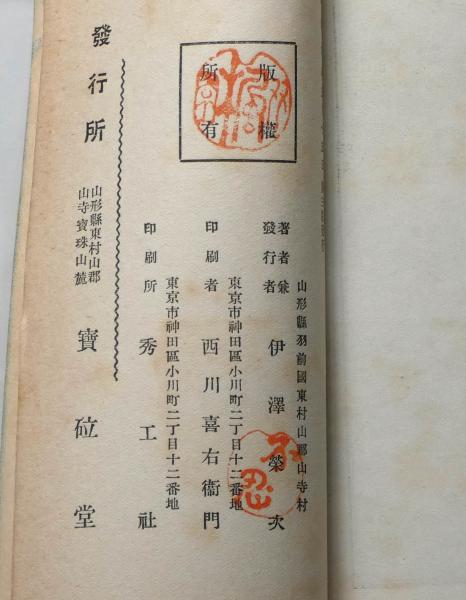 版權
所有
山形縣羽前國東村山郡山寺村
著者兼
發行者 伊澤榮次
東京市神田區小川町二丁目十二番地
印刷者 西川喜右衞門
東京市神田區小川町二丁目十二番地
印刷所 秀工社
發行所
山形縣東村山郡
山寺寶珠山麓
寶砬堂
不忍